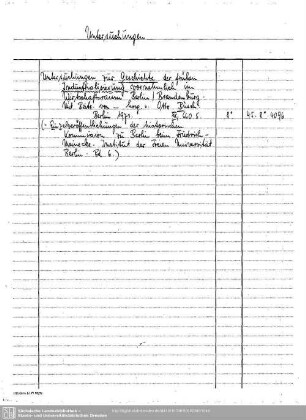 Untersuchungen
Untersuchungen zur Geschichte der frühen
Industrialisierung vornehmlich im
Wirtschaftsraum Berlin / Brandenburg.
Mit Beitr. von – hrsg. v. Otto Büsch.
Berlin 1971. 8° 45. 8° 4096
(= Einzelveröffentlichungen der Historischen
Kommission zu Berlin beim Friedrich-
Meinecke-Institut der Freien Universität
Berlin. Bd. 6.)
Sächsische Landesbibliothek -
Staats- und Universitätsbibliothek Dresden